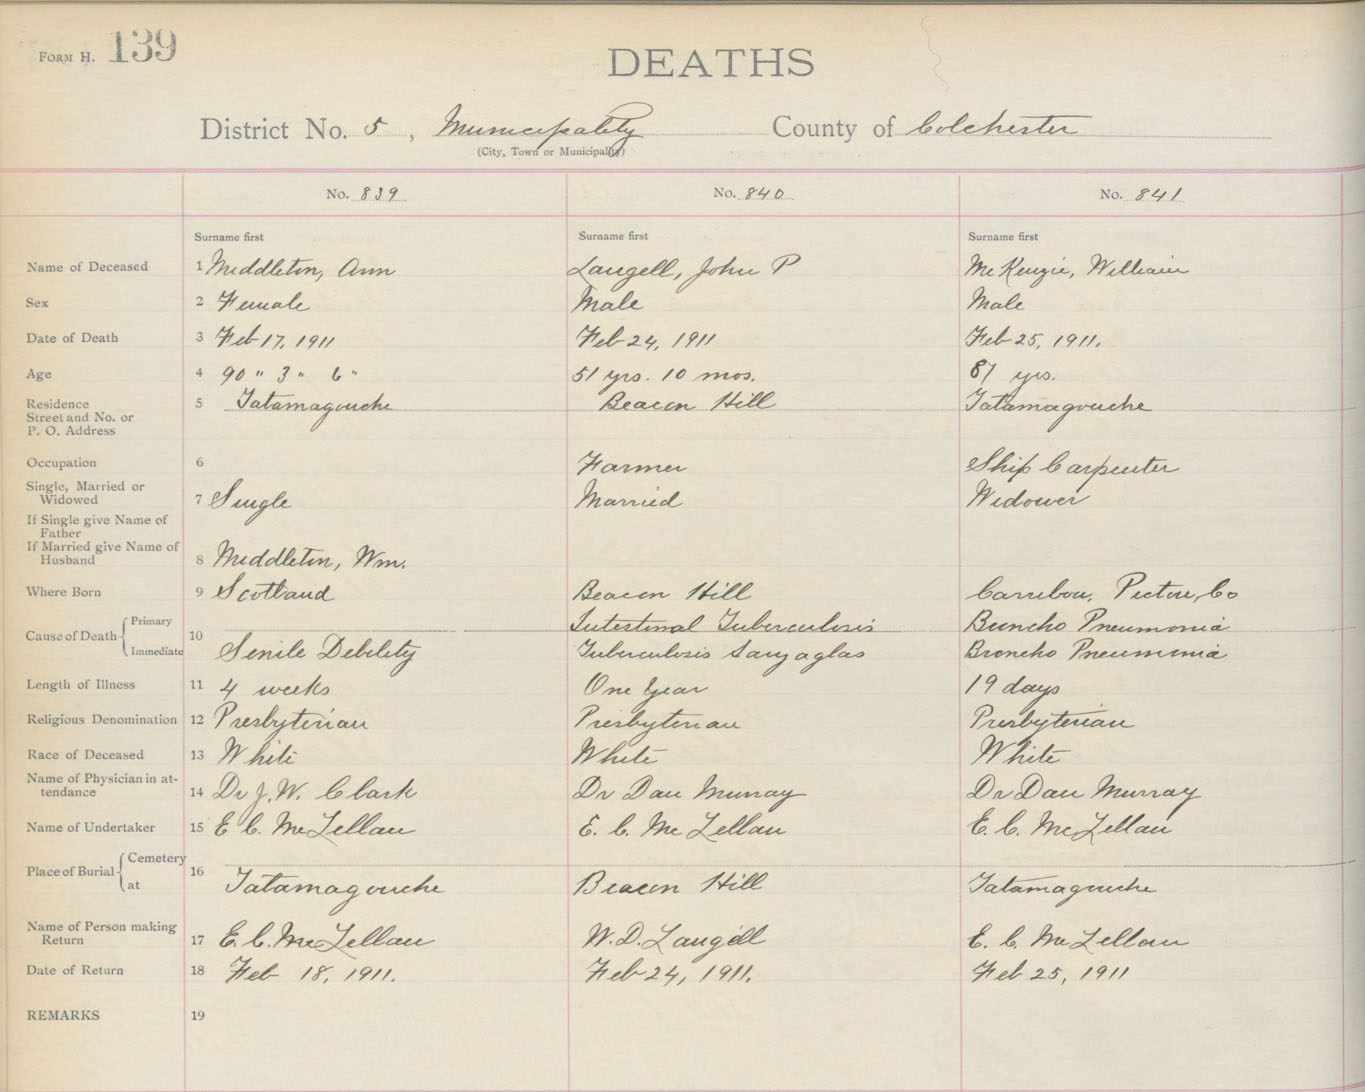 FORM H. 139
DEATHS
District No. 5, Municipality County of Colchester
(City, Town or Municipality)
No. 839 No. 840 No. 841
Surname first Surname first Surname first
Name of Deceased 1 Middleton, Ann Langell, John P McKenzie, William
Sex 2 Female Male Male
Date of Death 3 Feb 17, 1911 Feb 24, 1911 Feb 25, 1911.
Age 4 90 " 3 " 6 " 51 yrs. 10 mos. 87 yrs.
Residence 5 Tatamagouche Beacon Hill Tatamagouche
Street and No. or
P. O. Address
Occupation 6 Farmer Ship Carpenter
Single, Married or
Widowed 7 Single Married Widower
If Single give Name of
Father
If Married give Name of
Husband 8 Middleton, Wm.
Where Born 9 Scotland Beacon Hill Carribou, Pictou, Co
Primary Intestinal Tuberculosis Buncho Pneumonia
Cause of Death 10
Immediate Senile Debility Tuberculosis Broncho Pneumonia
Length of Illness 11 4 weeks One Year 19 days
Religious Denomination 12 Presbyterian Presbyterian Presbyterian
Race of Deceased 13 White White White
Name of Physician in at-
tendance 14 Dr J. W. Clark Dr Dan Murray Dr Dan Murray
Name of Undertaker 15 E C. McLellan E. C. McLellan E. C. McLellan
Cemetery
Place of Burial 16
at Tatamagouche Beacon Hill Tatamagouche
Name of Person making
Return 17 E. C. McLellan W. D. Langell E. C. McLellan
Date of Return 18 Feb 18, 1911. Feb 24, 1911. Feb 25, 1911
REMARKS 19